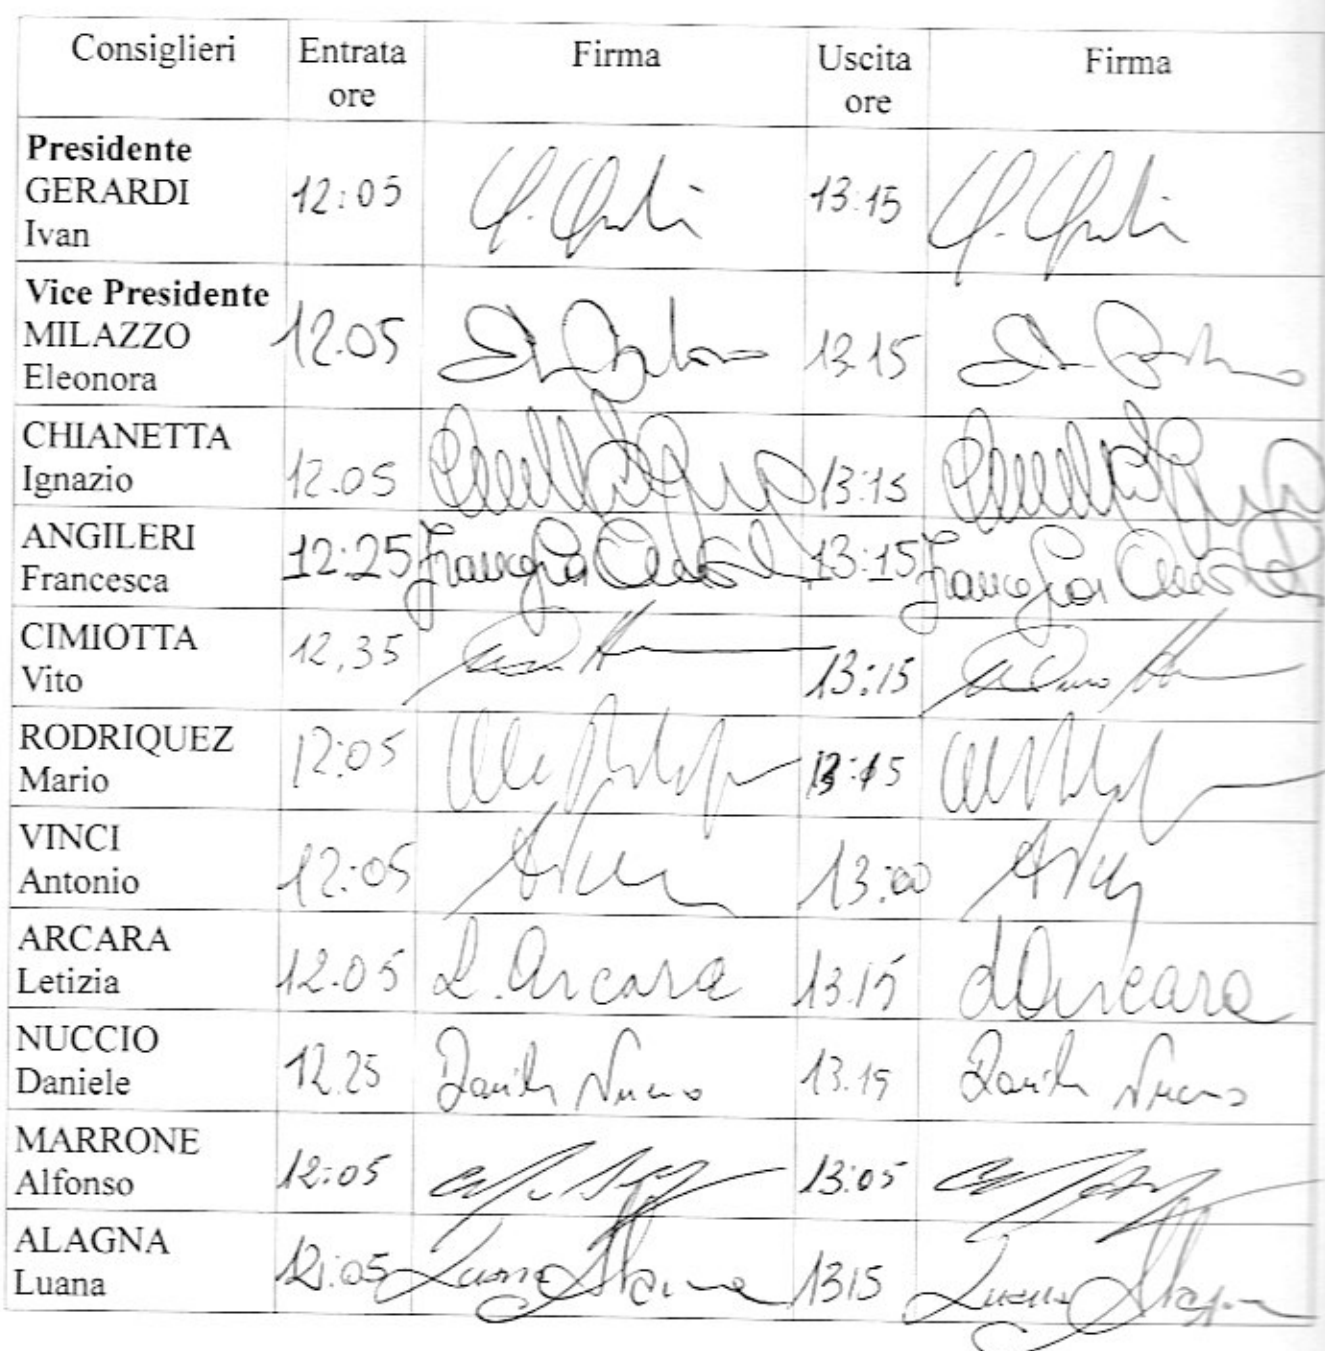 Consiglieri Entrata ore Firma Uscita ore Firma
Presidente
GERARDI
Ivan
12:05 13:15
Vice Presidente
MILAZZO
Eleonora
12.05 13.15
CHIANETTA
Ignazio
12.05 13:15
ANGILERI
Francesca
12:25 13:15
CIMIOTTA
Vito
12,35 13:15
RODRIQUEZ
Mario
12:05 13:15
VINCI
Antonio
12:05 13:00
ARCARA
Letizia
12.05 L. Arcara 13.15 L. Arcara
NUCCIO
Daniele
12.25 13.15
MARRONE
Alfonso
12:05 13:05
ALAGNA
Luana
12:05 Luana Alagna 1315 Luana Alagna